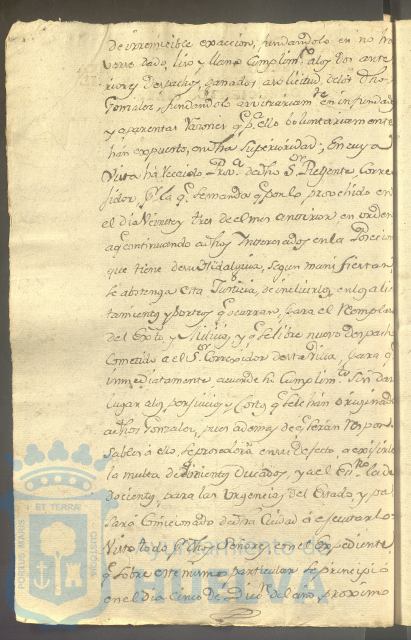 de irremicible exaccion, fundandolo en no ha
verse dado, liso y llano Cumplim.to alos dos ante
riores despachos, ganados a solicitud delos dhos
Gonzalez, fundandolo arbitrariam.te en infundada
y aparentes razones q.e p.a ello boluntariamente
han expuesto, en dha Superioridad; En cuya
Vista ha recaido Prov.a de dho S.or Regente, Corre
sidor, p.r la q.e se manda q.e por lo provehido en
el dia Veinte y tres de el mes anterior en orden
a q.e continuando a dhos Interesados en la Posecion
que tiene de su Hidalguia, segun manifiestan
se abstenga esta Justicia, de incluirlos en los alis
tamientos y sorteos q.e ocurran, para el Remplazo
del Exto y Milicias, y q.e se libre nuevo despacho
Cometido a el S.or Correxidor de esta Villa, para q.e
inmediatamente acuerde su Cumplim.to Sin dar
lugar a los perjuicios y Costas q.e se le han originado
a dhos Gonzalez, pues ademas de q.e seran respon
sables a ello, se procederá en su defecto, a exsijirle
la multa de docientos Ducados, y a el Ess.no la de
docientos, para las Urgencias, del Estado, y pa
sará Comicionado de dha Ciudad á ejecutarlo
Visto todo p.r dhos Señores con el Expediente
q.e sobre este mismo particular se principió
en el dia Cinco de Dici.e del año, proximo
PORTUS MARIS ET TERRAE CUSTODIA
Ayuntamiento de
HUELVA